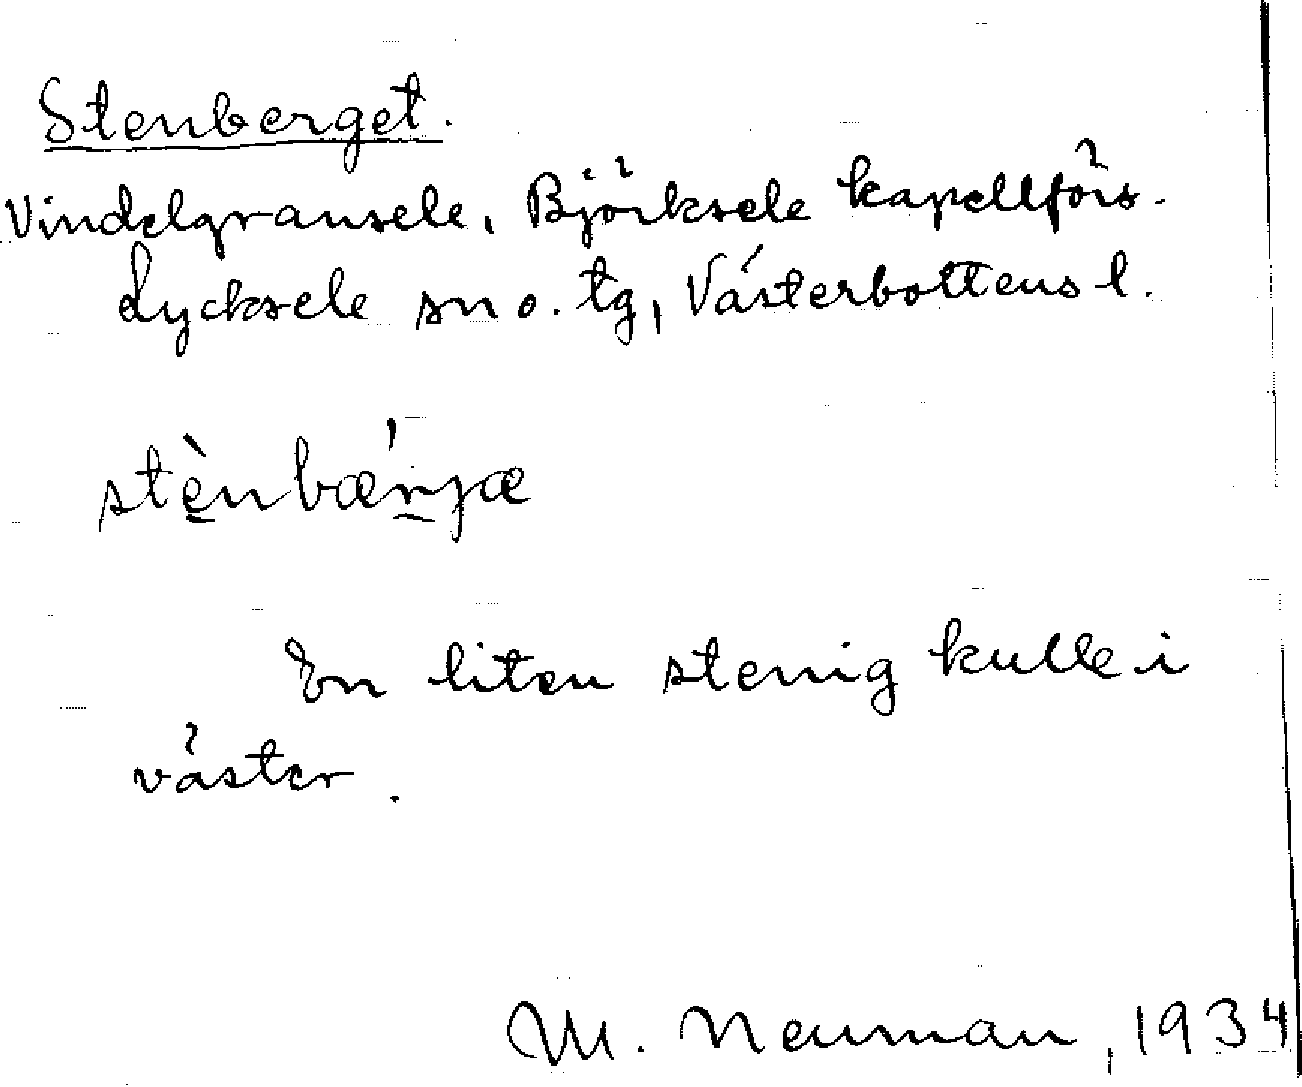 Stenberget.
Vindelgransele, Björksele kapellförs.
Lycksele sn o. tg, Västerbottens l.
stènbæ'rjæ
En liten stenig kulle i
väster.
M. Neuman, 1934